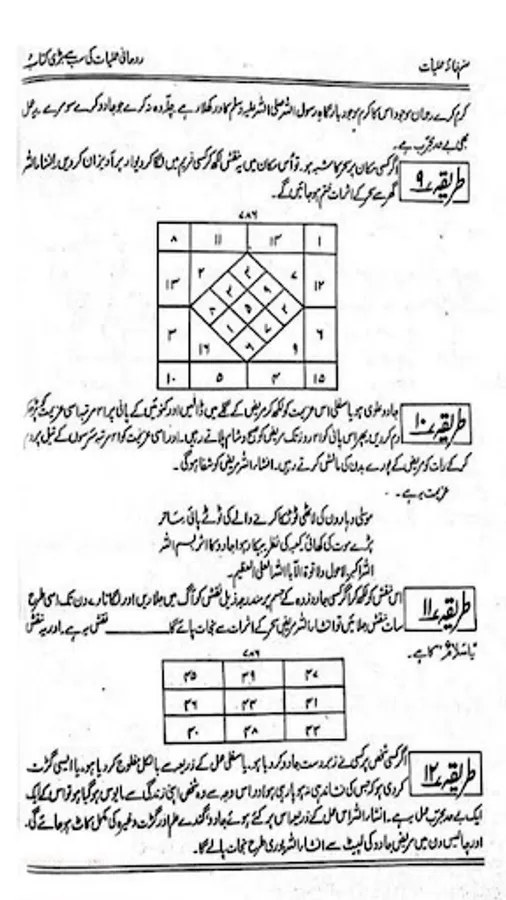 صنم خانۂ عملیات
روحانی عملیات کی سب سے بڑی کتاب
کرم کرے رحمان موجود اس کا کرم موجود بارگاہ رسول اللہ صلی اللہ علیہ وسلم کا در کھلا رہے جلد وہ نہ کرے جو جادو کرے سو مرے۔ یہ عمل
بھی بے حد مجرب ہے۔
طریقہ ۹
اگر کسی مکان پر سحر کا شبہ ہو۔ تو اُس مکان میں یہ نقش لکھ کر کسی فریم میں لگا کر دیوار پر آویزاں کردیں۔ انشاءاللہ
گھر سے سحر کے اثرات ختم ہوجائیں گے۔
۷۸۶
۸ ۱۱ ۱۳ ۱
۱۳ ۲ ۷ ۱۲
۳ ۱۶ ۹ ۶
۱۰ ۵ ۴ ۱۵
طریقہ ۱۰
جادو علوی ہو یا سفلی اس عزیمت کو لکھ کر مریض کے گلے میں ڈالیں اور کنوئیں کے پانی پر ۱۰۱ مرتبہ اسی عزیمت کو پڑھ کر
دم کردیں۔ پھر اس پانی کو روز تک مریض کو صبح و شام پلاتے رہیں۔ اور اسی عزیمت کو ۱۰۱ مرتبہ سرسوں کے تیل پر دم
کرکے رات کو مریض کے پورے بدن کی مالش کرتے رہیں۔ انشاءاللہ مریض کو شفا ہوگی۔
عزیمت یہ ہے۔
موسیٰ و ہارون کی لاٹھی ٹوٹکا کرنے والے کی ٹوٹے
پڑے موت کی کھائی۔ کعبہ کی نظر بیکار ہوا جادو کا اثر بسم اللہ
اللہ اکبر۔ لاحول ولا قوۃ الا باللہ العلی العظیم۔
طریقہ ۱۱
اس نقش کو لکھ کر اگر کسی جادو زدہ کے جسم پر مندرجہ ذیل نقش کو آگ میں جلادیں اور لگاتار سات دن تک اسی طرح
سات نقش جلائیں تو انشاءاللہ مریض سحر کے اثرات سے نجات پائے گا۔ نقش یہ ہے۔ اور یہ نقش
"یا سلامُ" کا ہے۔
۷۸۶
۴۵ ۳۹ ۴۷
۴۶ ۴۳ ۴۱
۴۰ ۴۸ ۴۳
طریقہ ۱۲
اگر کسی شخص پر کسی نے زبردست جادو کردیا ہو۔ یا سفلی عمل کے ذریعہ سے بالکل مفلوج کردیا ہو۔ یا ایسی گڑت
کردی ہو کہ جس کی نشاندہی نہ ہو پا رہی ہو اور اس وجہ سے وہ شخص اپنی زندگی سے مایوس ہوگیا ہو تو اس کے لیے
ایک بے حد مجرب عمل یہ ہے۔ انشاءاللہ اس عمل کے ذریعہ اس پر کئے ہوئے جادو گندے علم اور گڑت وغیرہ کی مکمل کاٹ ہوجائے گی۔
اور چالیس دن میں مریض جادو کی لپیٹ سے انشاءاللہ پوری طرح نجات پالے گا۔